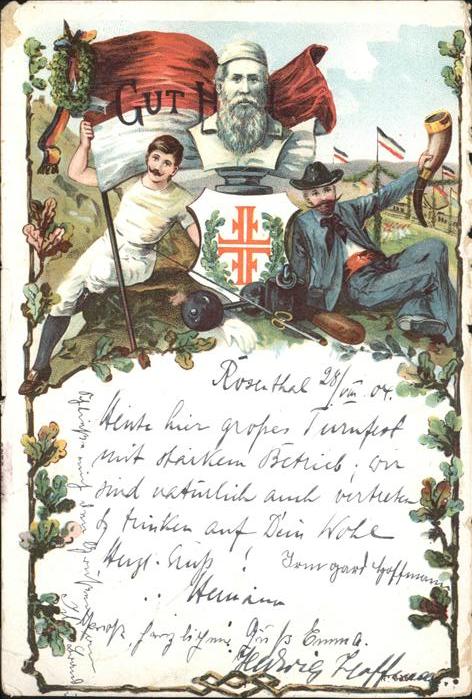 GUT H
Rosenthal 28/VIII. 04.
Heute hier großes Turnfest
mit starkem Betrieb; wir
sind natürlich auch vertreten
& trinken auf Dein Wohl
Herzl. Gruß! Irmgard Hoffmann
Hermann
herzlichen Gruß Emmb.
Hedwig Hoffmann